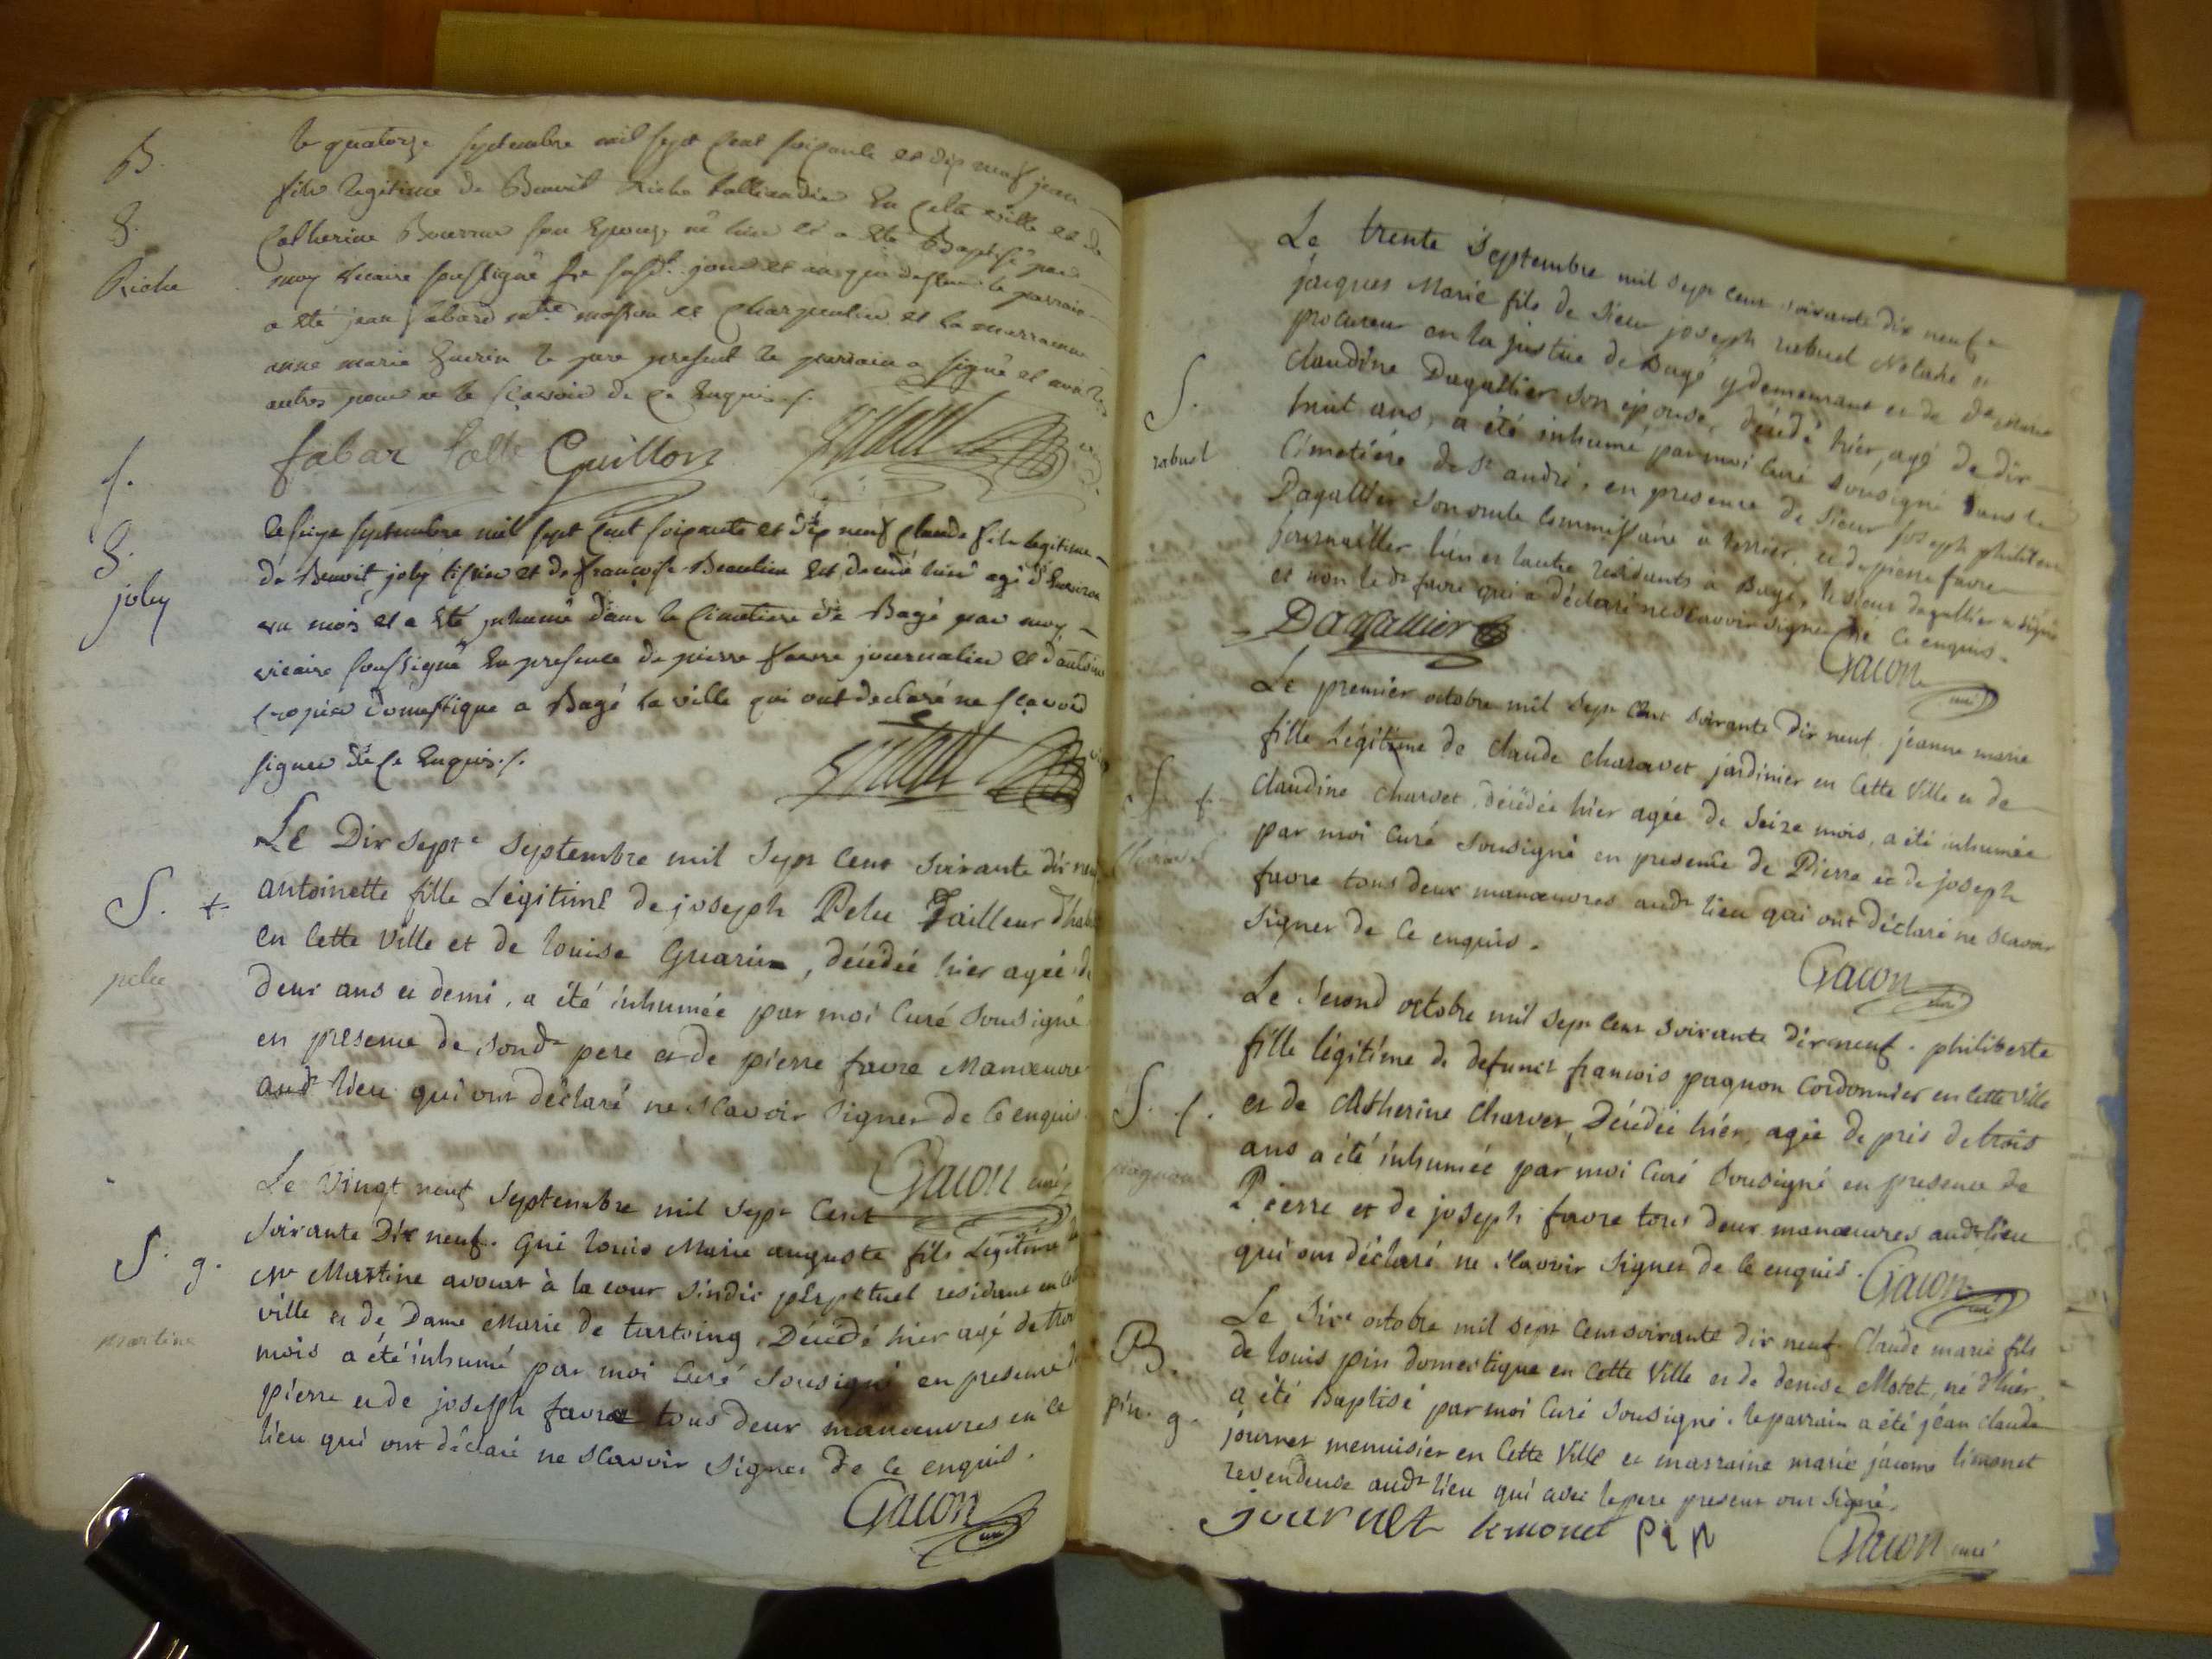 B.
g.
Riche
le quatorze septembre mil sept cent soixante et dix neuf jean
fils legitime de Benoit Riche en cette ville et de
Catherine son Epouse né hier et a été Baptisé par
moy vicaire soussigné le susd. jour et an que dessus le parrain
a été jean mtre et charpentier et la marraine
anne marie Guerin le pere present le parrain a signé et non les
autres pour ne le scavoir de ce Enquis ./.
fabar Guillon
f.
g.
joly
le seize septembre mil sept cent soixante et dix neuf claude fils legitime
de Benoit joly tissier et de françoise Beaulieu Est décédé hier agé d'Environ
un mois et a Eté inhumé dans le Cimetiere de Bagé par moy
vicaire soussigné En presence de pierre favre journalier et d'antoine
domestique a Bagé la ville qui ont declaré ne scavoir
signer de ce Enquis ./.
S. f.
pelu
Le Dix sept septembre mil sept cent soixante dix neuf
antoinette fille Légitime de joseph Pelu Tailleur d'habit
en cette ville et de louise Guarin, décédée hier agée de
deux ans et demi, a été inhumée par moi Curé sousigné
en presence de sond pere et de pierre favre Manœuvre
aud lieu qui ont déclaré ne scavoir signer de ce enquis.
Gacon curé
S. g.
martine
Le vingt neuf septembre mil sept cent
soixante Dix neuf. Gui louis Marie auguste fils Légitime de
Mr Martine avocat à la cour sindic perpetuel residant en cette
ville et de Dame Marie de tartoing, Décédé hier agé de trois
mois a été inhumé par moi Curé Sousigné en presence de
pierre et de joseph favre tous deux manœuvres en ce
lieu qui ont déclaré ne scavoir signer de ce enquis.
Gacon curé
S.
rabuel
Le trente Septembre mil sept cent soixante dix neuf
jacques Marie fils de Sieur joseph rabuel Notaire et
procureur en la justice de Bagé y demeurant et de
claudine Dagallier son épouse, décédé hier, agé de dix
huit ans, a été inhumé par moi Curé Sousigné dans le
Cimetière de St andré, en presence de Sieur joseph philibert
Dagallier son oncle Commissaire à terrier, et de pierre favre
journaillier l'un et lautre residants à Bagé, le sieur dagallier a signé
et non led favre qui a déclaré ne scavoir signer de ce enquis.
Dagallier
Gacon curé
S. f.
Charavet
Le premier octobre mil sept cent soixante dix neuf. jeanne marie
fille Légitime de claude charavet jardinier en cette ville et de
claudine charvet, décédée hier agée de Seize mois, a été inhumée
par moi Curé Sousigné en presence de Pierre et de joseph
favre tous deux manœuvres aud lieu qui ont déclaré ne scavoir
signer de ce enquis.
Gacon curé
S. f.
pagnon
Le Second octobre mil sept cent soixante dix neuf. philiberte
fille légitime de defunct francois pagnon Cordonnier en cette ville
et de Catherine Charvet, Décédée hier, agée de près de trois
ans a été inhumée par moi Curé Sousigné en presence de
Pierre et de joseph favre tous deux manœuvres aud lieu
qui ont déclaré ne scavoir signer de ce enquis.
Gacon curé
B.
pin. g.
Le Six octobre mil sept cent soixante dix neuf Claude marie fils
de louis pin domestique en cette Ville et de denise Motet, né d'hier
a été Baptisé par moi Curé Sousigné. le parrain a été jean claude
journet menuisier en cette Ville et marraine marie jacome limonet
revendeuse aud lieu qui avec le pere present ont signé.
journet limonet pin
Gacon curé